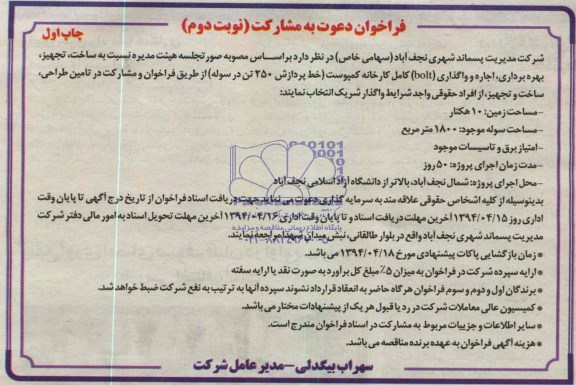 فراخوان دعوت به مشارکت (نوبت دوم)
چاپ اول
شرکت مدیریت پسماند شهری نجف آباد (سهامی خاص) در نظر دارد بر اساس مصوبه صورتجلسه هیئت مدیره نسبت به ساخت، تجهیز،
بهره برداری، اجاره و واگذاری (bolt) کامل کارخانه کمپوست (خط پردازش ۲۵۰ تن در سوله) از طریق فراخوان و مشارکت در تامین طراحی،
ساخت و تجهیز، از افراد حقوقی واجد شرایط واگذار شریک انتخاب نمایند:
-مساحت زمین: ۱۰ هکتار
-مساحت سوله موجود: ۱۸۰۰ متر مربع
-امتیاز برق و تاسیسات موجود
-مدت زمان اجرای پروژه: ۵۰ روز
-محل اجرای پروژه: شمال نجف آباد، بالاتر از دانشگاه آزاد اسلامی نجف آباد
بدینوسیله از کلیه اشخاص حقوقی علاقه مند به سرمایه گذاری دعوت می نماید جهت دریافت اسناد فراخوان از تاریخ درج آگهی تا پایان وقت
اداری روز ۱۳۹۴/۰۴/۱۵ آخرین مهلت دریافت اسناد و تا پایان وقت اداری ۱۳۹۴/۰۴/۱۶ آخرین مهلت تحویل اسناد به امور مالی دفتر شرکت
مدیریت پسماند شهری نجف آباد واقع در بلوار طالقانی، نبش میدان شهدا مراجعه نمایند.
* زمان بازگشایی پاکات پیشنهادی مورخ ۱۳۹۴/۰۴/۱۸ می باشد.
* ارایه سپرده شرکت در فراخوان به میزان ۵٪ مبلغ کل برآورد به صورت نقد یا ارایه سفته
* برندگان اول و دوم و سوم فراخوان هر گاه حاضر به انعقاد قرارداد نشوند سپرده آنها به ترتیب به نفع شرکت ضبط خواهد شد.
* کمیسیون عالی معاملات شرکت در رد یا قبول هر یک از پیشنهادات مختار می باشد.
* سایر اطلاعات و جزییات مربوط به مشارکت در اسناد فراخوان مندرج است.
* هزینه آگهی فراخوان به عهده برنده مناقصه می باشد.
سهراب بیگدلی - مدیر عامل شرکت